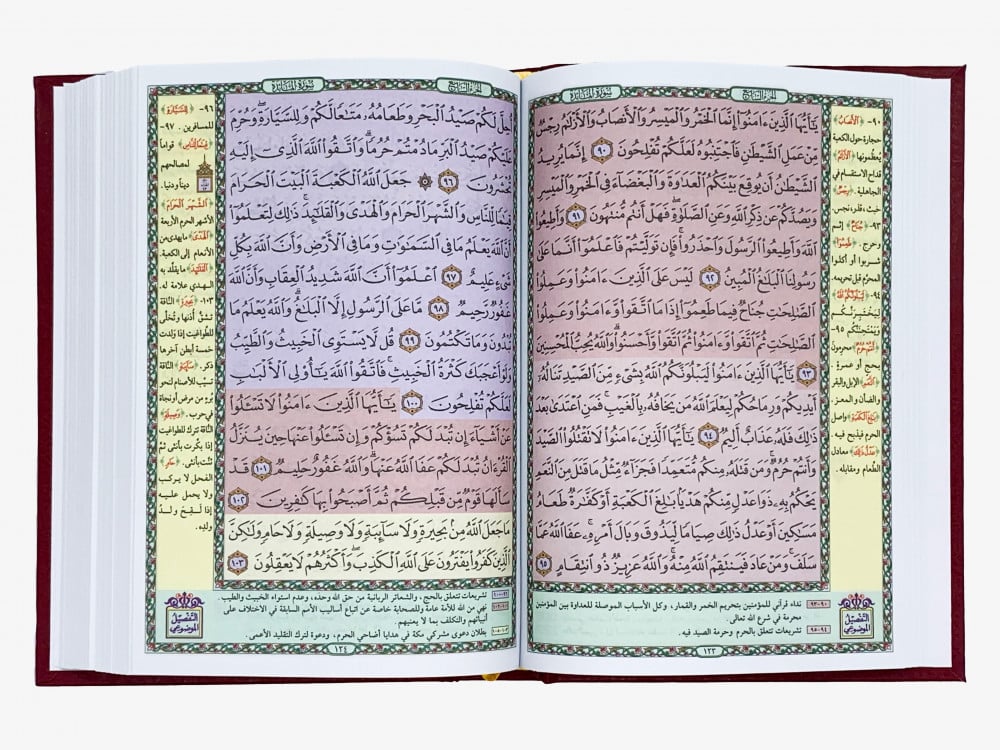 سورة المائدة
الجزء السابع
يَٰٓأَيُّهَا ٱلَّذِينَ ءَامَنُوٓا۟ إِنَّمَا ٱلْخَمْرُ وَٱلْمَيْسِرُ وَٱلْأَنصَابُ وَٱلْأَزْلَٰمُ رِجْسٌ
مِّنْ عَمَلِ ٱلشَّيْطَٰنِ فَٱجْتَنِبُوهُ لَعَلَّكُمْ تُفْلِحُونَ ٩٠ إِنَّمَا يُرِيدُ
ٱلشَّيْطَٰنُ أَن يُوقِعَ بَيْنَكُمُ ٱلْعَدَٰوَةَ وَٱلْبَغْضَآءَ فِى ٱلْخَمْرِ وَٱلْمَيْسِرِ
وَيَصُدَّكُمْ عَن ذِكْرِ ٱللَّهِ وَعَنِ ٱلصَّلَوٰةِ ۖ فَهَلْ أَنتُم مُّنتَهُونَ ٩١ وَأَطِيعُوا۟
ٱللَّهَ وَأَطِيعُوا۟ ٱلرَّسُولَ وَٱحْذَرُوا۟ ۚ فَإِن تَوَلَّيْتُمْ فَٱعْلَمُوٓا۟ أَنَّمَا عَلَىٰ
رَسُولِنَا ٱلْبَلَٰغُ ٱلْمُبِينُ ٩٢ لَيْسَ عَلَى ٱلَّذِينَ ءَامَنُوا۟ وَعَمِلُوا۟
ٱلصَّٰلِحَٰتِ جُنَاحٌ فِيمَا طَعِمُوٓا۟ إِذَا مَا ٱتَّقَوا۟ وَّءَامَنُوا۟ وَعَمِلُوا۟
ٱلصَّٰلِحَٰتِ ثُمَّ ٱتَّقَوا۟ وَّءَامَنُوا۟ ثُمَّ ٱتَّقَوا۟ وَّأَحْسَنُوا۟ ۗ وَٱللَّهُ يُحِبُّ ٱلْمُحْسِنِينَ
٩٣ يَٰٓأَيُّهَا ٱلَّذِينَ ءَامَنُوا۟ لَيَبْلُوَنَّكُمُ ٱللَّهُ بِشَىْءٍ مِّنَ ٱلصَّيْدِ تَنَالُهُۥٓ
أَيْدِيكُمْ وَرِمَاحُكُمْ لِيَعْلَمَ ٱللَّهُ مَن يَخَافُهُۥ بِٱلْغَيْبِ ۚ فَمَنِ ٱعْتَدَىٰ بَعْدَ
ذَٰلِكَ فَلَهُۥ عَذَابٌ أَلِيمٌ ٩٤ يَٰٓأَيُّهَا ٱلَّذِينَ ءَامَنُوا۟ لَا تَقْتُلُوا۟ ٱلصَّيْدَ
وَأَنتُمْ حُرُمٌ ۚ وَمَن قَتَلَهُۥ مِنكُم مُّتَعَمِّدًا فَجَزَآءٌ مِّثْلُ مَا قَتَلَ مِنَ ٱلنَّعَمِ
يَحْكُمُ بِهِۦ ذَوَا عَدْلٍ مِّنكُمْ هَدْيًۢا بَٰلِغَ ٱلْكَعْبَةِ أَوْ كَفَّٰرَةٌ طَعَامُ
مَسَٰكِينَ أَوْ عَدْلُ ذَٰلِكَ صِيَامًا لِّيَذُوقَ وَبَالَ أَمْرِهِۦ ۗ عَفَا ٱللَّهُ عَمَّا
سَلَفَ ۚ وَمَنْ عَادَ فَيَنتَقِمُ ٱللَّهُ مِنْهُ ۗ وَٱللَّهُ عَزِيزٌ ذُو ٱنتِقَامٍ ٩٥
٩٠- ﴿الأنصاب﴾
حجارة حول الكعبة
يعظمونها ﴿الأزلام﴾
قداح الاستقسام في
الجاهلية. ﴿رجس﴾
خبث، قذر، نجس.
٩٣- ﴿جناح﴾ إثم
وحرج. ﴿طعموا﴾
شربوا أو أكلوا
المحرّم قبل تحريمه.
٩٤- ﴿ليبلونكم الله﴾
ليختبرنكم
ويمتحننكم ٩٥-
﴿أنتم حرم﴾ محرمون
بحج أو عمرة.
﴿النعم﴾ الإبل والبقر
والضأن والمعز.
﴿بالغ الكعبة﴾ واصل
الحرم فيذبح فيه.
﴿عدل ذلك﴾ معادل
الطعام ومقابله.
٩٠-٩٣ نداء قرآني للمؤمنين بتحريم الخمر والقمار، وكل الأسباب الموصلة للعداوة بين المؤمنين
محرمة في شرع الله تعالى.
٩٤-٩٥ تشريعات تتعلق بالحرم وحرمة الصيد فيه.
التفصيل
الموضوعي
١٢٣
الجزء السابع
سورة المائدة
أُحِلَّ لَكُمْ صَيْدُ ٱلْبَحْرِ وَطَعَامُهُۥ مَتَٰعًا لَّكُمْ وَلِلسَّيَّارَةِ ۖ وَحُرِّمَ
عَلَيْكُمْ صَيْدُ ٱلْبَرِّ مَا دُمْتُمْ حُرُمًا ۗ وَٱتَّقُوا۟ ٱللَّهَ ٱلَّذِىٓ إِلَيْهِ
تُحْشَرُونَ ٩٦ ۞ جَعَلَ ٱللَّهُ ٱلْكَعْبَةَ ٱلْبَيْتَ ٱلْحَرَامَ
قِيَٰمًا لِّلنَّاسِ وَٱلشَّهْرَ ٱلْحَرَامَ وَٱلْهَدْىَ وَٱلْقَلَٰٓئِدَ ۚ ذَٰلِكَ لِتَعْلَمُوٓا۟
أَنَّ ٱللَّهَ يَعْلَمُ مَا فِى ٱلسَّمَٰوَٰتِ وَمَا فِى ٱلْأَرْضِ وَأَنَّ ٱللَّهَ بِكُلِّ
شَىْءٍ عَلِيمٌ ٩٧ ٱعْلَمُوٓا۟ أَنَّ ٱللَّهَ شَدِيدُ ٱلْعِقَابِ وَأَنَّ ٱللَّهَ
غَفُورٌ رَّحِيمٌ ٩٨ مَّا عَلَى ٱلرَّسُولِ إِلَّا ٱلْبَلَٰغُ ۗ وَٱللَّهُ يَعْلَمُ مَا
تُبْدُونَ وَمَا تَكْتُمُونَ ٩٩ قُل لَّا يَسْتَوِى ٱلْخَبِيثُ وَٱلطَّيِّبُ
وَلَوْ أَعْجَبَكَ كَثْرَةُ ٱلْخَبِيثِ ۚ فَٱتَّقُوا۟ ٱللَّهَ يَٰٓأُو۟لِى ٱلْأَلْبَٰبِ
لَعَلَّكُمْ تُفْلِحُونَ ١٠٠ يَٰٓأَيُّهَا ٱلَّذِينَ ءَامَنُوا۟ لَا تَسْـَٔلُوا۟
عَنْ أَشْيَآءَ إِن تُبْدَ لَكُمْ تَسُؤْكُمْ وَإِن تَسْـَٔلُوا۟ عَنْهَا حِينَ يُنَزَّلُ
ٱلْقُرْءَانُ تُبْدَ لَكُمْ عَفَا ٱللَّهُ عَنْهَا ۗ وَٱللَّهُ غَفُورٌ حَلِيمٌ ١٠١ قَدْ
سَأَلَهَا قَوْمٌ مِّن قَبْلِكُمْ ثُمَّ أَصْبَحُوا۟ بِهَا كَٰفِرِينَ ١٠٢
مَا جَعَلَ ٱللَّهُ مِنۢ بَحِيرَةٍ وَلَا سَآئِبَةٍ وَلَا وَصِيلَةٍ وَلَا حَامٍ ۙ وَلَٰكِنَّ
ٱلَّذِينَ كَفَرُوا۟ يَفْتَرُونَ عَلَى ٱللَّهِ ٱلْكَذِبَ ۖ وَأَكْثَرُهُمْ لَا يَعْقِلُونَ ١٠٣
٩٦- ﴿للسيارة﴾
للمسافرين. ٩٧-
﴿قياما للناس﴾ قواماً
لمصالحهم
ديناً ودنيا.
﴿الشهر الحرام﴾
الأشهر الحرم الأربعة
﴿الهدي﴾ ما يهدى من
الأنعام إلى الكعبة.
﴿القلائد﴾ ما يقلد به
الهدي علامة له.
١٠٣- ﴿بحيرة﴾ الناقة
تشق أذنها وتخلى
للطواغيت إذا ولدت
خمسة أبطن آخرها
ذكر. ﴿سائبة﴾ الناقة
تسيّب للأصنام لنحو
برء من مرض أو نجاة
في حرب. ﴿وصيلة﴾
الناقة تترك للطواغيت
إذا بكّرت بأنثى ثم
ثنّت بأنثى. ﴿حام﴾
الفحل لا يركب
ولا يحمل عليه
إذا لقح ولد
ولده.
تشريعات تتعلق بالحج، والشعائر الربانية من حق الله وحده، وعدم استواء الخبيث والطيب.
نهي من الله للأمة عامة وللصحابة خاصة عن اتباع أساليب الأمم السابقة في الاختلاف على
أنبيائهم والتكلف بما لا يعنيهم.
بطلان دعوى مشركي مكة في هدايا أضاحي الحرم، ودعوة لترك التقليد الأعمى.
التفصيل
الموضوعي
١٢٤